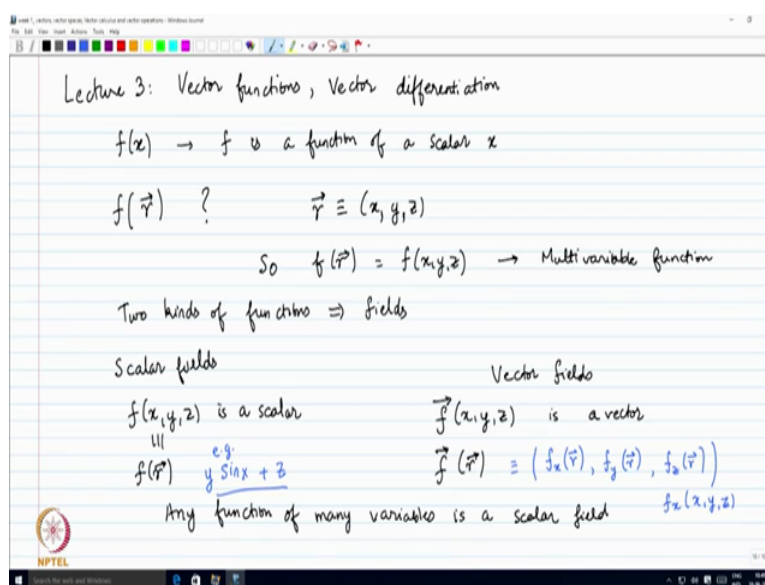 week 1_ vectors, vector spaces, Vector calculus and vector operations - Windows Journal
File Edit View Insert Actions Tools Help
Lecture 3: Vector functions, Vector differentiation
f(x) → f is a function of a scalar x
f(r⃗) ? r⃗ ≡ (x, y, z)
So f(r⃗) = f(x,y,z) → Multivariable function
Two kinds of functions ⇒ fields
Scalar fields Vector fields
f(x,y,z) is a scalar f⃗(x,y,z) is a vector
f(r⃗) e.g. y sinx + z f⃗(r⃗) ≡ (fx(r⃗), fy(r⃗), fz(r⃗))
fx(x,y,z)
Any function of many variables is a scalar field
NPTEL
Search the web and Windows
ENG